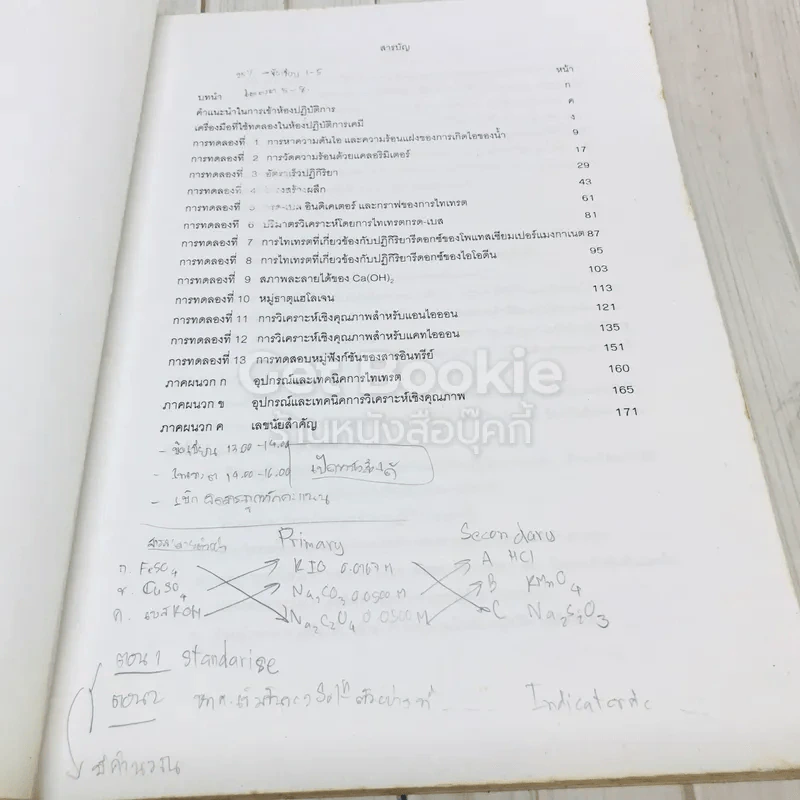 สารบัญ
หน้า
บทนำ ก
คำแนะนำในการเข้าห้องปฏิบัติการ ค
เครื่องมือที่ใช้ทดลองในห้องปฏิบัติการเคมี ง
การทดลองที่ 1 การหาความดันไอ และความร้อนแฝงของการเกิดไอของน้ำ 9
การทดลองที่ 2 การวัดความร้อนด้วยแคลอริมิเตอร์ 17
การทดลองที่ 3 อัตราเร็วปฏิกิริยา 29
การทดลองที่ 4 โครงสร้างผลึก 43
การทดลองที่ 5 กรด-เบส อินดิเคเตอร์ และกราฟของการไทเทรต 61
การทดลองที่ 6 ปริมาตรวิเคราะห์โดยการไทเทรตกรด-เบส 81
การทดลองที่ 7 การไทเทรตที่เกี่ยวข้องกับปฏิกิริยารีดอกซ์ของโพแทสเซียมเปอร์แมงกาเนต 87
การทดลองที่ 8 การไทเทรตที่เกี่ยวข้องกับปฏิกิริยารีดอกซ์ของไอโอดีน 95
การทดลองที่ 9 สภาพละลายได้ของ Ca(OH)₂ 103
การทดลองที่ 10 หมู่ธาตุแฮโลเจน 113
การทดลองที่ 11 การวิเคราะห์เชิงคุณภาพสำหรับแอนไอออน 121
การทดลองที่ 12 การวิเคราะห์เชิงคุณภาพสำหรับแคทไอออน 135
การทดลองที่ 13 การทดสอบหมู่ฟังก์ชันของสารอินทรีย์ 151
ภาคผนวก ก อุปกรณ์และเทคนิคการไทเทรต 160
ภาคผนวก ข อุปกรณ์และเทคนิคการวิเคราะห์เชิงคุณภาพ 165
ภาคผนวก ค เลขนัยสำคัญ 171
Get Bookie
ร้านหนังสือบุ๊คกี้
- ข้อเขียน 13.00-14.00
14.00-16.00
Primary Secondary
ก. FeSO₄ KIO 0.0167 M A HCl
ข. CuSO₄ Na₂CO₃ 0.0500 M B KMnO₄
ค. เบส KOH Na₂C₂O₄ 0.0500 M C Na₂S₂O₃
ตอน 1 standarise
ตอน 2